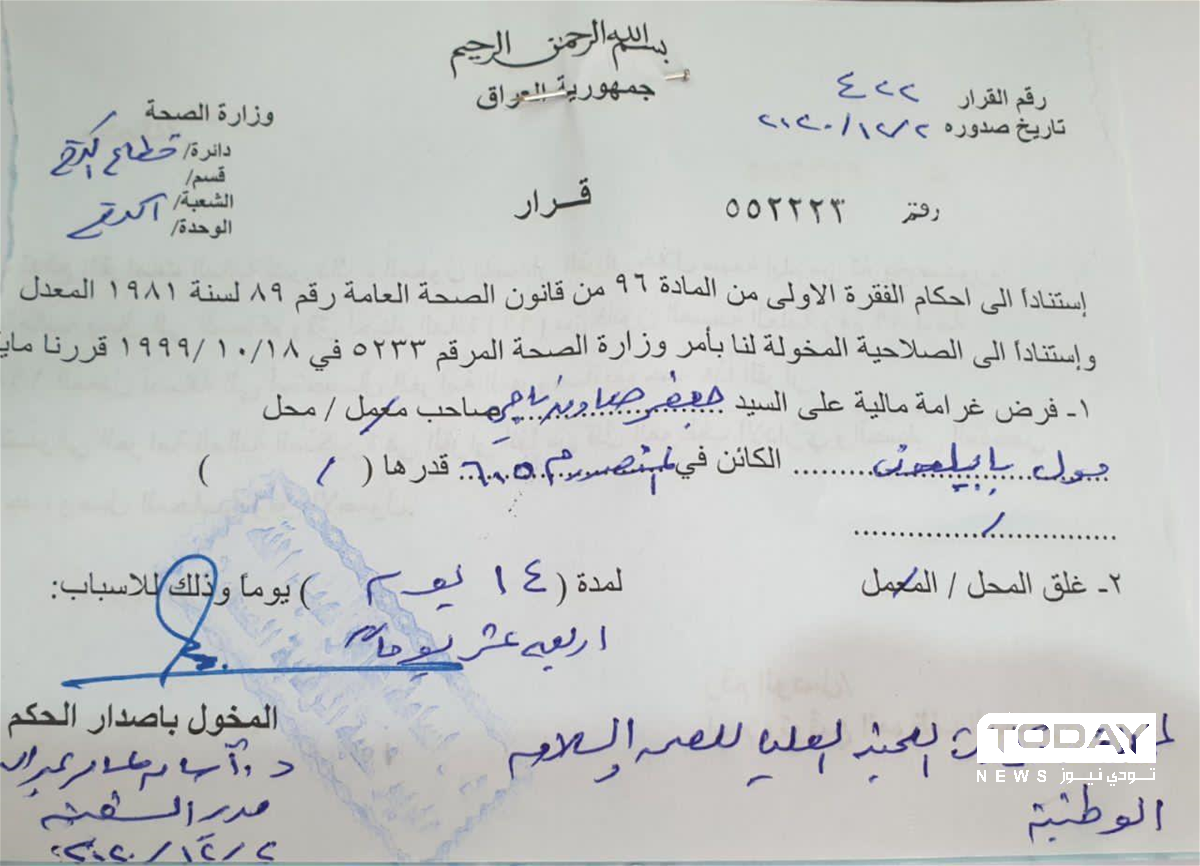 بسم الله الرحمن الرحيم
جمهورية العراق
رقم القرار ٤٢٢
تاريخ صدوره ٢٠٢٠/١٢/٢
وزارة الصحة
دائرة/ قطاع
قسم/
الشعبة/
الوحدة/
قرار
رقم ٥٥٢٢٢٣
إستناداً الى احكام الفقرة الاولى من المادة ٩٦ من قانون الصحة العامة رقم ٨٩ لسنة ١٩٨١ المعدل
وإستناداً الى الصلاحية المخولة لنا بأمر وزارة الصحة المرقم ٥٢٣٣ في ١٩٩٩/١٠/١٨ قررنا ماي
١- فرض غرامة مالية على السيد جعفر صاحب معمل / محل
مول بابيلون الكائن في المنصور م ٦٠٥ قدرها ( / )
/
٢- غلق المحل / المعمل لمدة ( ١٤ يوم ) يوماً وذلك للاسباب:
اربعة عشر يوماً
العليا للصحة والسلامة
الوطنية
المخول باصدار الحكم
د.
مدير الشعبة
٢٠٢٠/١٢/٢
TODAY
NEWS تـودي نيـوز